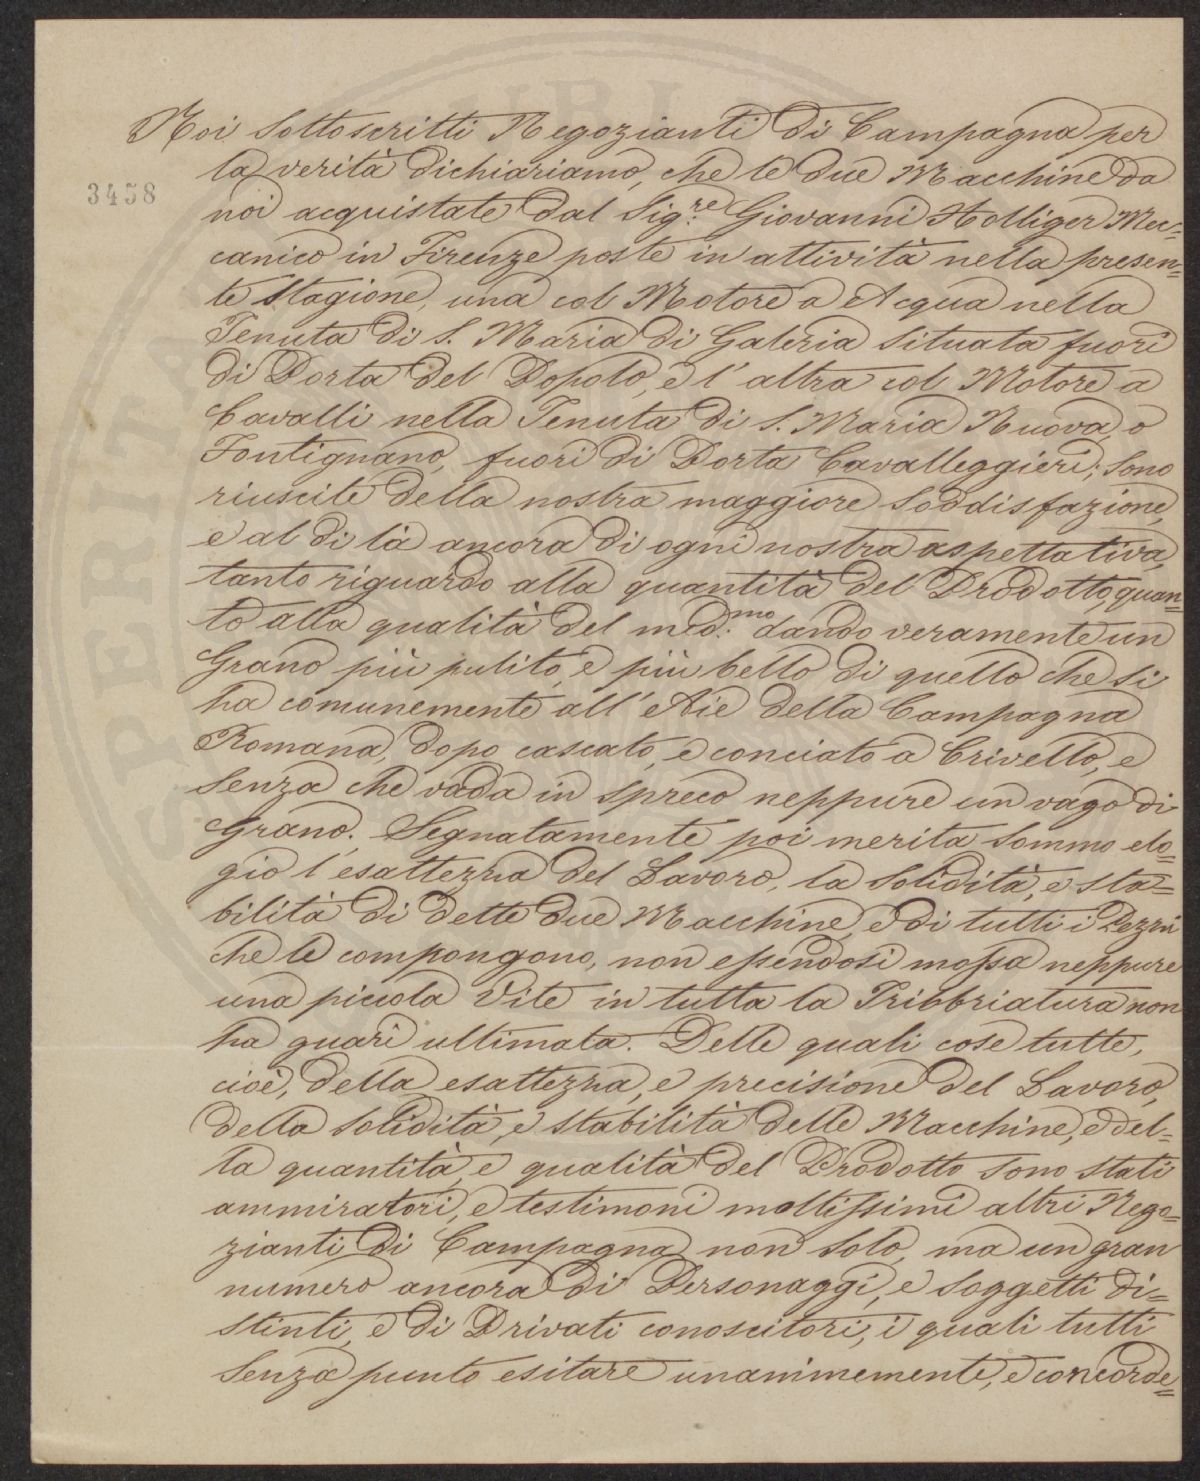 Noi Sottoscritti Negozianti di Campagna per
la verità dichiariamo, che le due Macchine da
3458
noi acquistate dal Sig.re Giovanni Holliger Mec=
canico in Firenze poste in attività nella presen=
te Stagione, una col Motore a Acqua nella
Tenuta di S. Maria di Galeria situata fuori
di Porta del Popolo, e l'altra col Motore a
Cavalli nella Tenuta di S. Maria Nuova, o
Fontignano, fuori di Porta Cavalleggieri; sono
riuscite della nostra maggiore Soddisfazione,
e al di là ancora di ogni nostra aspettativa,
tanto riguardo alla quantità del Prodotto, quan=
to alla qualità del med.mo dando veramente un
Grano più pulito, e più bello di quello che si
ha comunemente all'Aie della Campagna
Romana, dopo cascato, e conciato a Crivello, e
senza che vada in spreco neppure un vago di
Grano. Segnatamente poi merita sommo elo=
gio l'esattezza del Lavoro, la solidità, e sta=
bilità di dette due Macchine, e di tutti i Pezzi
che le compongono, non essendosi mossa neppure
una piccola Vite in tutta la Tribbiatura non
ha guari ultimata. Delle quali cose tutte,
cioè, della esattezza, e precisione del Lavoro,
della solidità, e stabilità delle Macchine, e del=
la quantità, e qualità del Prodotto sono stati
ammiratori, e testimoni moltissimi altri Nego=
zianti di Campagna non solo, ma un gran
numero ancora di Personaggi, e soggetti di=
stinti, e di Privati conoscitori, i quali tutti
senza punto esitare unanimemente, e concorde=
SPERITAS